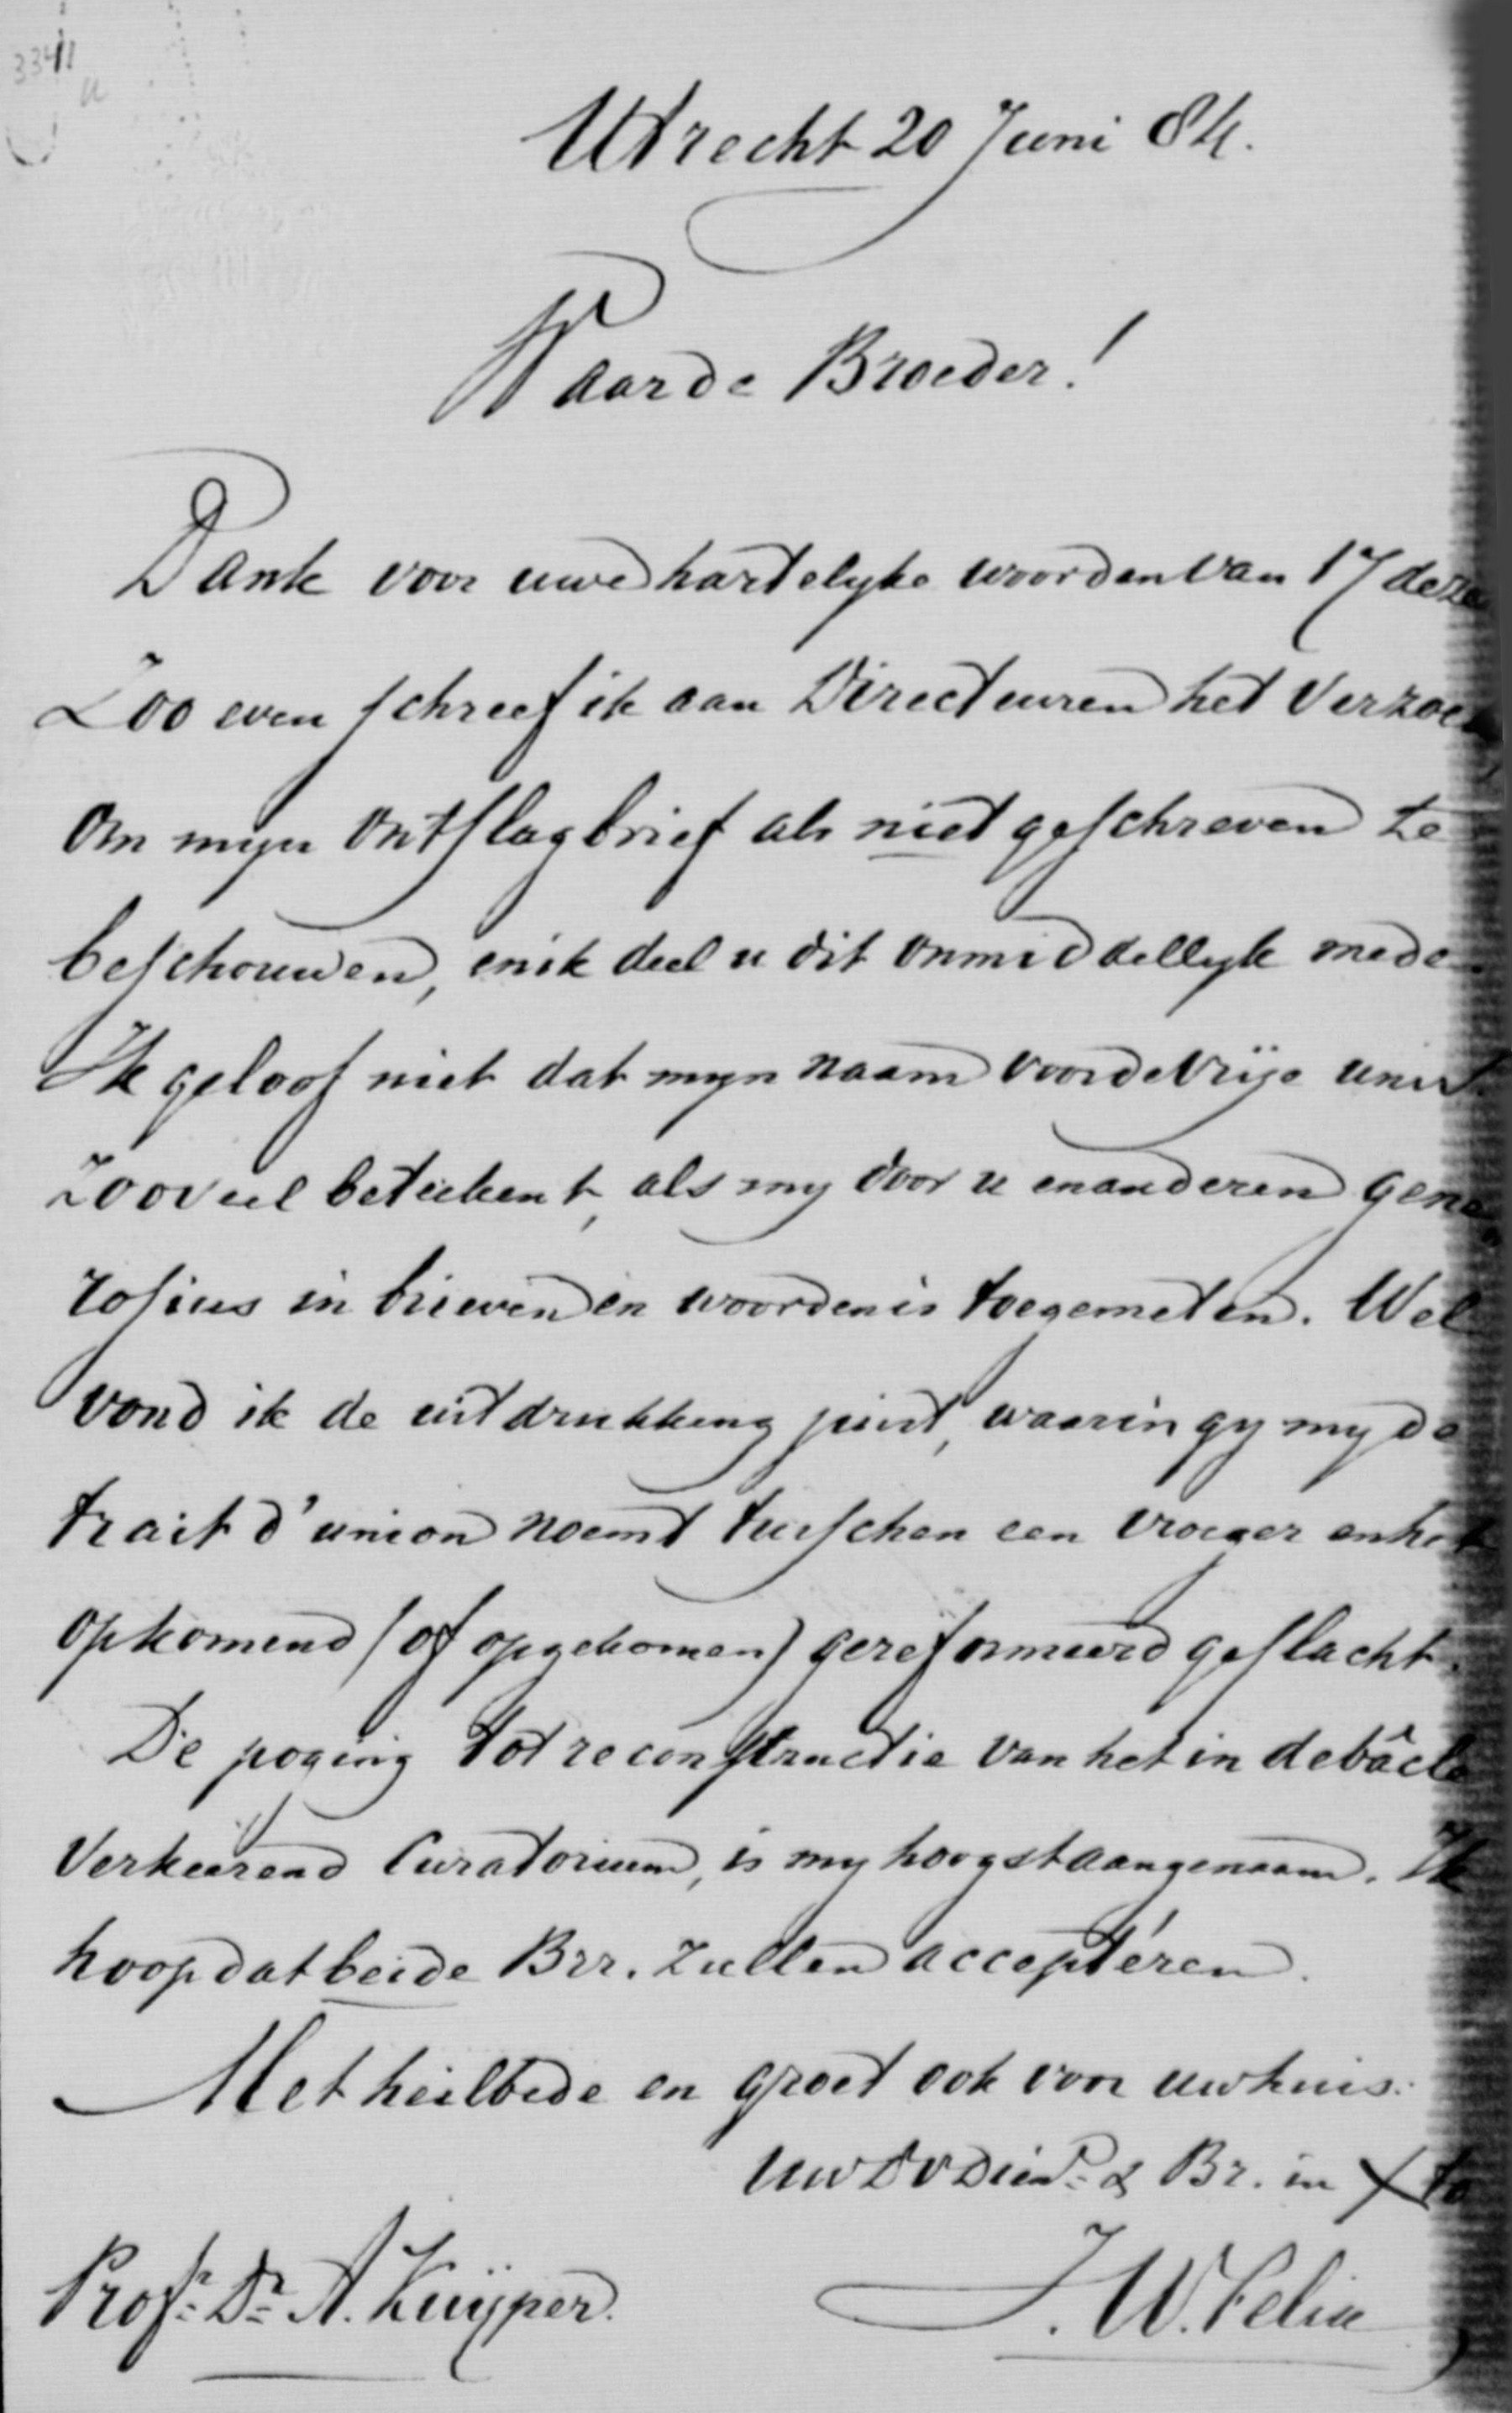 3341
Utrecht 20 Juni 84.
Waarde Broeder!
Dank voor uwe hartelyke woorden van 17 dezer
Zoo even schreef ik aan Directeuren het verzoek
om myn ontslagbrief als niet geschreven te
beschouwen, en ik deel u dit onmiddellyk mede.
Ik geloof niet dat myn naam voor de Vrije univ.
zooveel beteekent, als my door u en anderen gene
rosius in brieven en woorden is toegemeten. Wel
vond ik de uitdrukking juist, waarin gy my de
trait d'union noemt tusschen een vroeger en het
opkomend (of opgekomen) gereformeerd geslacht.
De poging tot reconstructie van het in debâcle
verkeerend Curatorium, is my hoogst aangenaam. Ik
hoop dat beide Brr. zullen acceptéren.
Met heilbede en groet ook voor uw huis.
Uw & Br. in Xto
J. W. Felix
Prof.r D.r A. Kuijper.